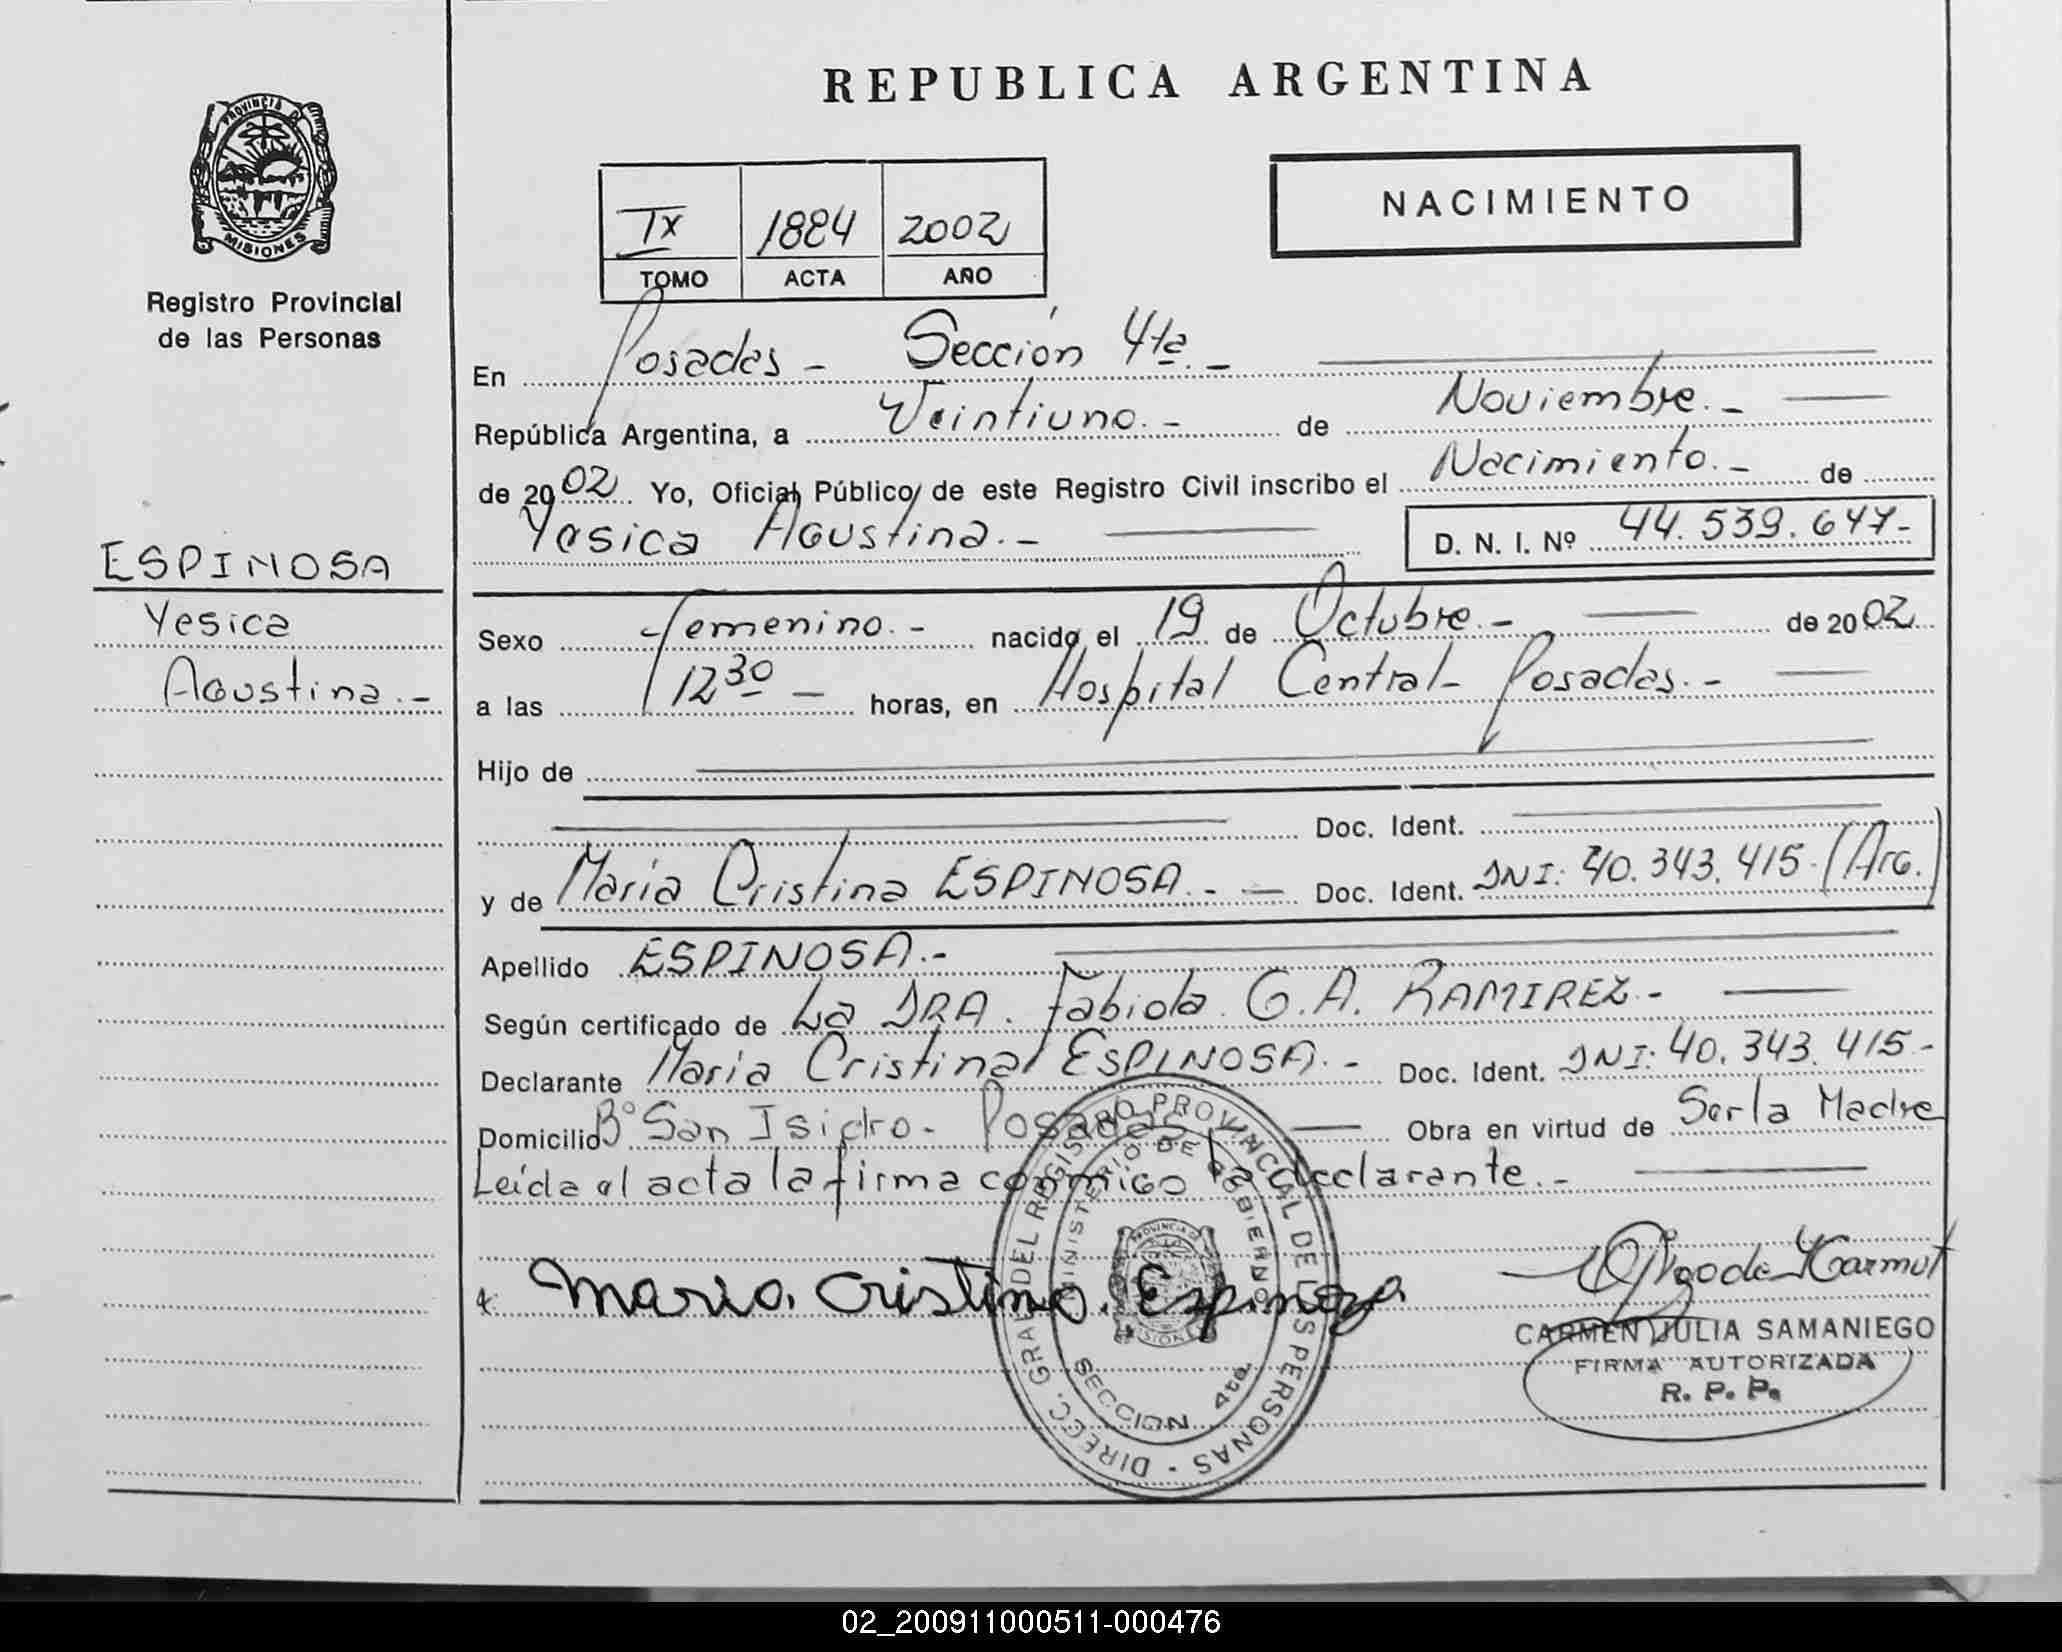 REPUBLICA ARGENTINA
PROVINCIA DE
MISIONES
Registro Provincial
de las Personas
NACIMIENTO
IX 1884 2002
TOMO ACTA AÑO
En Posadas - Sección 4ta. -
República Argentina, a Veintiuno. - de Noviembre. -
de 2002 Yo, Oficial Público de este Registro Civil inscribo el Nacimiento. - de
Yesica Agustina. - D. N. I. Nº 44.539.647-
ESPINOSA
Yesica
Agustina. -
Sexo femenino. - nacido el 19 de Octubre. - de 2002
a las 12 30 - horas, en Hospital Central - Posadas. -
Hijo de
Doc. Ident.
y de María Cristina ESPINOSA. - Doc. Ident. DNI: 40.343.415. (Arg.)
Apellido ESPINOSA. -
Según certificado de La DRA. Fabiola G. A. RAMIREZ. -
Declarante María Cristina ESPINOSA. - Doc. Ident. DNI: 40.343.415 -
Domicilio Bº San Isidro - Posadas Obra en virtud de Ser la Madre
Leída el acta la firma conmigo la declarante. -
Maria Cristina Espinoza
DIREC. GRAL. DEL REGISTRO PROVINCIAL DE LAS PERSONAS -
MINISTERIO DE GOBIERNO
SECCION 4ta.
CARMEN JULIA SAMANIEGO
FIRMA AUTORIZADA
R. P. P.
02_200911000511-000476